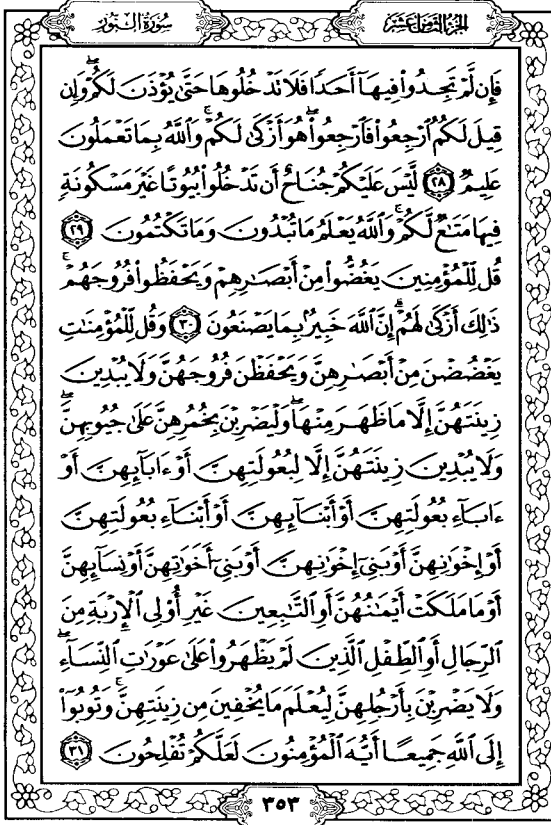 سُورَةُ النُّورِ
الجُزْءُ الثَّامِنَ عَشَرَ
فَإِن لَّمْ تَجِدُوا۟ فِيهَآ أَحَدًا فَلَا تَدْخُلُوهَا حَتَّىٰ يُؤْذَنَ لَكُمْ ۖ وَإِن
قِيلَ لَكُمُ ٱرْجِعُوا۟ فَٱرْجِعُوا۟ ۖ هُوَ أَزْكَىٰ لَكُمْ ۚ وَٱللَّهُ بِمَا تَعْمَلُونَ
عَلِيمٌ ٢٨ لَّيْسَ عَلَيْكُمْ جُنَاحٌ أَن تَدْخُلُوا۟ بُيُوتًا غَيْرَ مَسْكُونَةٍ
فِيهَا مَتَـٰعٌ لَّكُمْ ۚ وَٱللَّهُ يَعْلَمُ مَا تُبْدُونَ وَمَا تَكْتُمُونَ ٢٩
قُل لِّلْمُؤْمِنِينَ يَغُضُّوا۟ مِنْ أَبْصَـٰرِهِمْ وَيَحْفَظُوا۟ فُرُوجَهُمْ ۚ
ذَٰلِكَ أَزْكَىٰ لَهُمْ ۗ إِنَّ ٱللَّهَ خَبِيرٌۢ بِمَا يَصْنَعُونَ ٣٠ وَقُل لِّلْمُؤْمِنَـٰتِ
يَغْضُضْنَ مِنْ أَبْصَـٰرِهِنَّ وَيَحْفَظْنَ فُرُوجَهُنَّ وَلَا يُبْدِينَ
زِينَتَهُنَّ إِلَّا مَا ظَهَرَ مِنْهَا ۖ وَلْيَضْرِبْنَ بِخُمُرِهِنَّ عَلَىٰ جُيُوبِهِنَّ ۖ
وَلَا يُبْدِينَ زِينَتَهُنَّ إِلَّا لِبُعُولَتِهِنَّ أَوْ ءَابَآئِهِنَّ أَوْ
ءَابَآءِ بُعُولَتِهِنَّ أَوْ أَبْنَآئِهِنَّ أَوْ أَبْنَآءِ بُعُولَتِهِنَّ
أَوْ إِخْوَٰنِهِنَّ أَوْ بَنِىٓ إِخْوَٰنِهِنَّ أَوْ بَنِىٓ أَخَوَٰتِهِنَّ أَوْ نِسَآئِهِنَّ
أَوْ مَا مَلَكَتْ أَيْمَـٰنُهُنَّ أَوِ ٱلتَّـٰبِعِينَ غَيْرِ أُو۟لِى ٱلْإِرْبَةِ مِنَ
ٱلرِّجَالِ أَوِ ٱلطِّفْلِ ٱلَّذِينَ لَمْ يَظْهَرُوا۟ عَلَىٰ عَوْرَٰتِ ٱلنِّسَآءِ ۖ
وَلَا يَضْرِبْنَ بِأَرْجُلِهِنَّ لِيُعْلَمَ مَا يُخْفِينَ مِن زِينَتِهِنَّ ۚ وَتُوبُوٓا۟
إِلَى ٱللَّهِ جَمِيعًا أَيُّهَ ٱلْمُؤْمِنُونَ لَعَلَّكُمْ تُفْلِحُونَ ٣١
٣٥٣